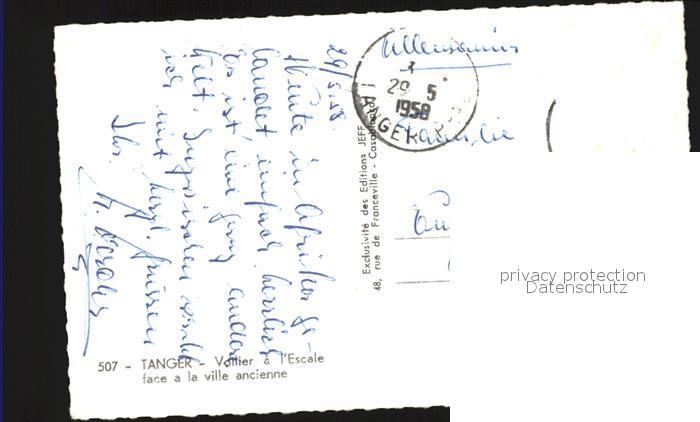 29/5.58.
Heute in Afrika ge-
landet einfach herrlich
Es ist eine ganz andere
Welt. Inzwischen
mit herzl. Grüssen
Ihr
507 - TANGER - Voilier à l'Escale
face a la ville ancienne
Exclusivité des Editions JEFF
48, rue de Franceville - Casablanca
29 5
1958
TANGER
Familie
privacy protection
Datenschutz